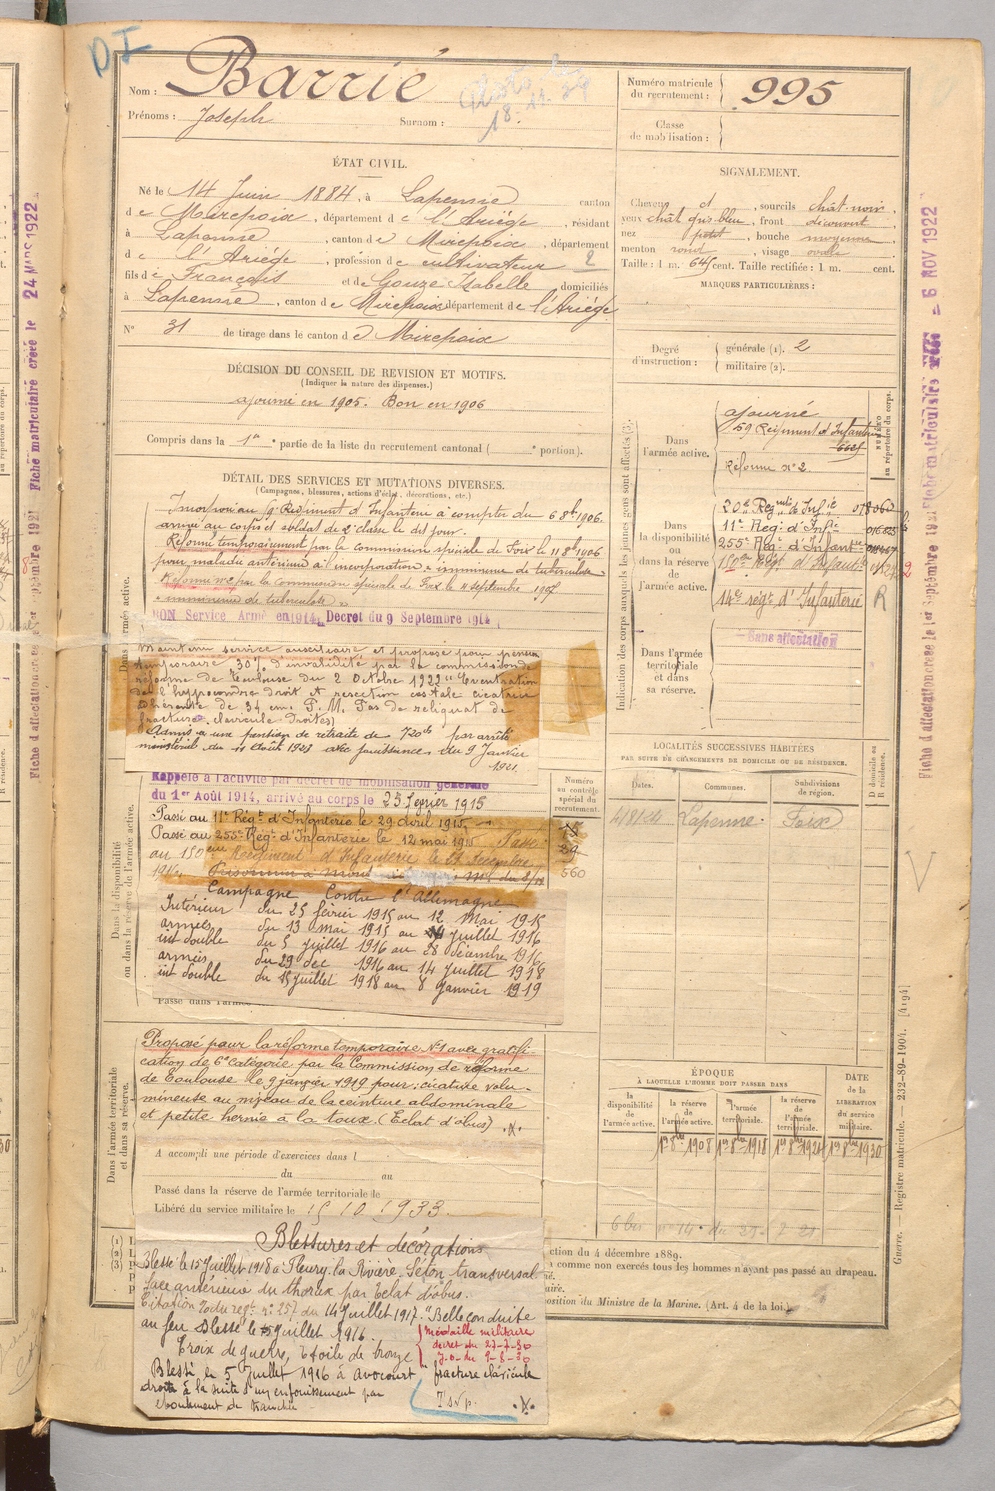 D I
Nom : Barrié
Prénoms : Joseph Surnom :
18. 11. 34
Numéro matricule du recrutement : 995
Classe de mobilisation :
ÉTAT CIVIL.
Né le 14 Juin 1884, à Lapenne canton
de Mirepoix, département de l'Ariége, résidant
à Lapenne, canton de Mirepoix, département
de l'Ariége, profession de cultivateur 2
fils de François et de Gouze Isabelle domiciliés
à Lapenne, canton de Mirepoix département de l'Ariége
N° 31 de tirage dans le canton de Mirepoix
SIGNALEMENT.
Cheveux et, sourcils chât-noir,
yeux chât gris-bleu, front découvert
nez petit, bouche moyenne
menton rond, visage ovale
Taille : 1 m. 64½ cent. Taille rectifiée : 1 m. cent.
MARQUES PARTICULIÈRES :
Degré d'instruction : générale (1). 2
militaire (2).
DÉCISION DU CONSEIL DE REVISION ET MOTIFS.
(Indiquer la nature des dispenses.)
ajourné en 1905. Bon en 1906
Compris dans la 1re partie de la liste du recrutement cantonal ( e portion).
DÉTAIL DES SERVICES ET MUTATIONS DIVERSES.
(Campagnes, blessures, actions d'éclat, décorations, etc.)
Dans l'armée active.
Incorporé au Régiment d'Infanterie à compter du 6 8bre 1906.
arrivé au corps et soldat de 2e classe le dit jour.
Réformé temporairement par la commission spéciale de Foix le 11 8bre 1906
pour maladie antérieure à l'incorporation « imminence de tuberculose »
Réformé n°2 par la commission spéciale de Foix le 4 septembre 1907
« imminence de tuberculose »
BON Service Armé en 1914, Decret du 9 Septembre 1914
Maintenu service auxiliaire et proposé pour pension
temporaire 30% d'invalidité par la commission de
réforme de Toulouse du 2 Octobre 1922 "Eventration
de l'hypocondre droit et resection costale cicatrice
adhérente de 34 cm. P. M. Pas de reliquat de
fracture clavicule droite)
Admis à une pension de retraite de 720 fs par arrêté
ministériel du 11 Août 1923 avec jouissance du 9 Janvier
1921.
Rappelé à l'activité par decret de mobilisation générale
du 1er Août 1914, arrivé au corps le 25 février 1915
Passé au 11e Régt d'Infanterie le 29 avril 1915
Passé au 255e Régt d'Infanterie le 12 mai 1915 Passé
au 150eme Régiment d'Infanterie le 21 décembre
1916.
Campagne Contre l'Allemagne
Intérieur du 25 février 1915 au 12 Mai 1915
armées du 13 mai 1915 au 4 Juillet 1916
int double du 5 juillet 1916 au 28 décembre 1916
armées du 29 dec 1916 au 14 juillet 1918
int double du 15 juillet 1918 au 8 Janvier 1919
Passé dans l'armée
Dans la disponibilité ou dans la réserve de l'armée active.
Numéro au contrôle spécial du recrutement.
29
560
Dans l'armée territoriale et dans sa réserve.
Proposé pour la réforme temporaire N°1 avec gratifi-
cation de 6e catégorie par la Commission de réforme
de Toulouse le 9 janvier 1919 pour : cicatrice volu-
mineuse au niveau de la ceinture abdominale
et petite hernie à la toux. (Eclat d'obus) .X.
A accompli une période d'exercices dans l
du au
Passé dans la réserve de l'armée territoriale le
Libéré du service militaire le 15 10 1933.
Blessures et décorations
Blessé le 15 Juillet 1918 à Fleury-la-Rivière. Séton transversal
face antérieure du thorax par Eclat d'obus.
Citation à du régt n° 257 du 14 Juillet 1917. "Belle conduite
au feu Blessé le 5 Juillet 1916.
Croix de guerre, Etoile de bronze
Médaille militaire
decret du 27-7-30
J.O. du 9-8-30.
Blessé le 5 juillet 1916 à Avocourt fracture clavicule
droite à la suite d'un enfouissement par
éboulement de tranchée
T.S.V.P. .X.
Indication des corps auxquels les jeunes gens sont affectés (3).
NUMÉRO au répertoire du corps.
Dans l'armée active.
ajourné
59 Régiment d'Infanterie
Réformé n°2.
Dans la disponibilité ou dans la réserve de l'armée active.
20e Régiment d'Infie
11e Reg: d'Infie 016825
255e Reg: d'Infanterie
150me Régt d'Infanterie
14e régt d'Infanterie R
Dans l'armée territoriale et dans sa réserve.
Sans affectation
LOCALITÉS SUCCESSIVES HABITÉES
PAR SUITE DE CHANGEMENTS DE DOMICILE OU DE RÉSIDENCE.
Dates. Communes. Subdivisions de région. D domicile ou R résidence.
Lapenne. Foix
ÉPOQUE
À LAQUELLE L'HOMME DOIT PASSER DANS
la disponibilité de l'armée active. la réserve de l'armée active. l'armée territoriale. la réserve de l'armée territoriale. DATE de la LIBÉRATION du service militaire.
1er 8bre 1908 1er 8bre 1918 1er 8bre 1924 1er 8bre 1930
ction du 4 décembre 1889.
comme non exercés tous les hommes n'ayant pas passé au drapeau.
osition du Ministre de la Marine. (Art. 4 de la loi.)
Guerre. — Registre matricule. — 232-89-1904. [4194]
Fiche matriculaire créée le 24 MARS 1922
Fiche d'affectation créée le 1er Septembre 1921
Fiche matriculaire créée le - 6 NOV 1922
Fiche d'affectation créée le 1er Septembre 1921